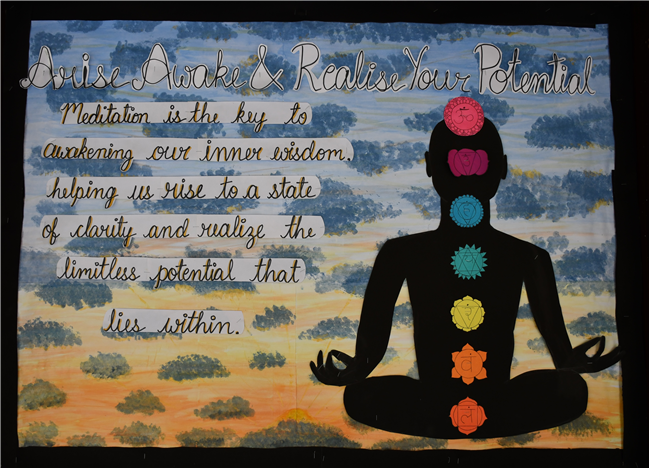 Arise Awake & Realise Your Potential
Meditation is the key to
awakening our inner wisdom.
helping us rise to a state
of clarity and realize the
limitless potential that
lies within.